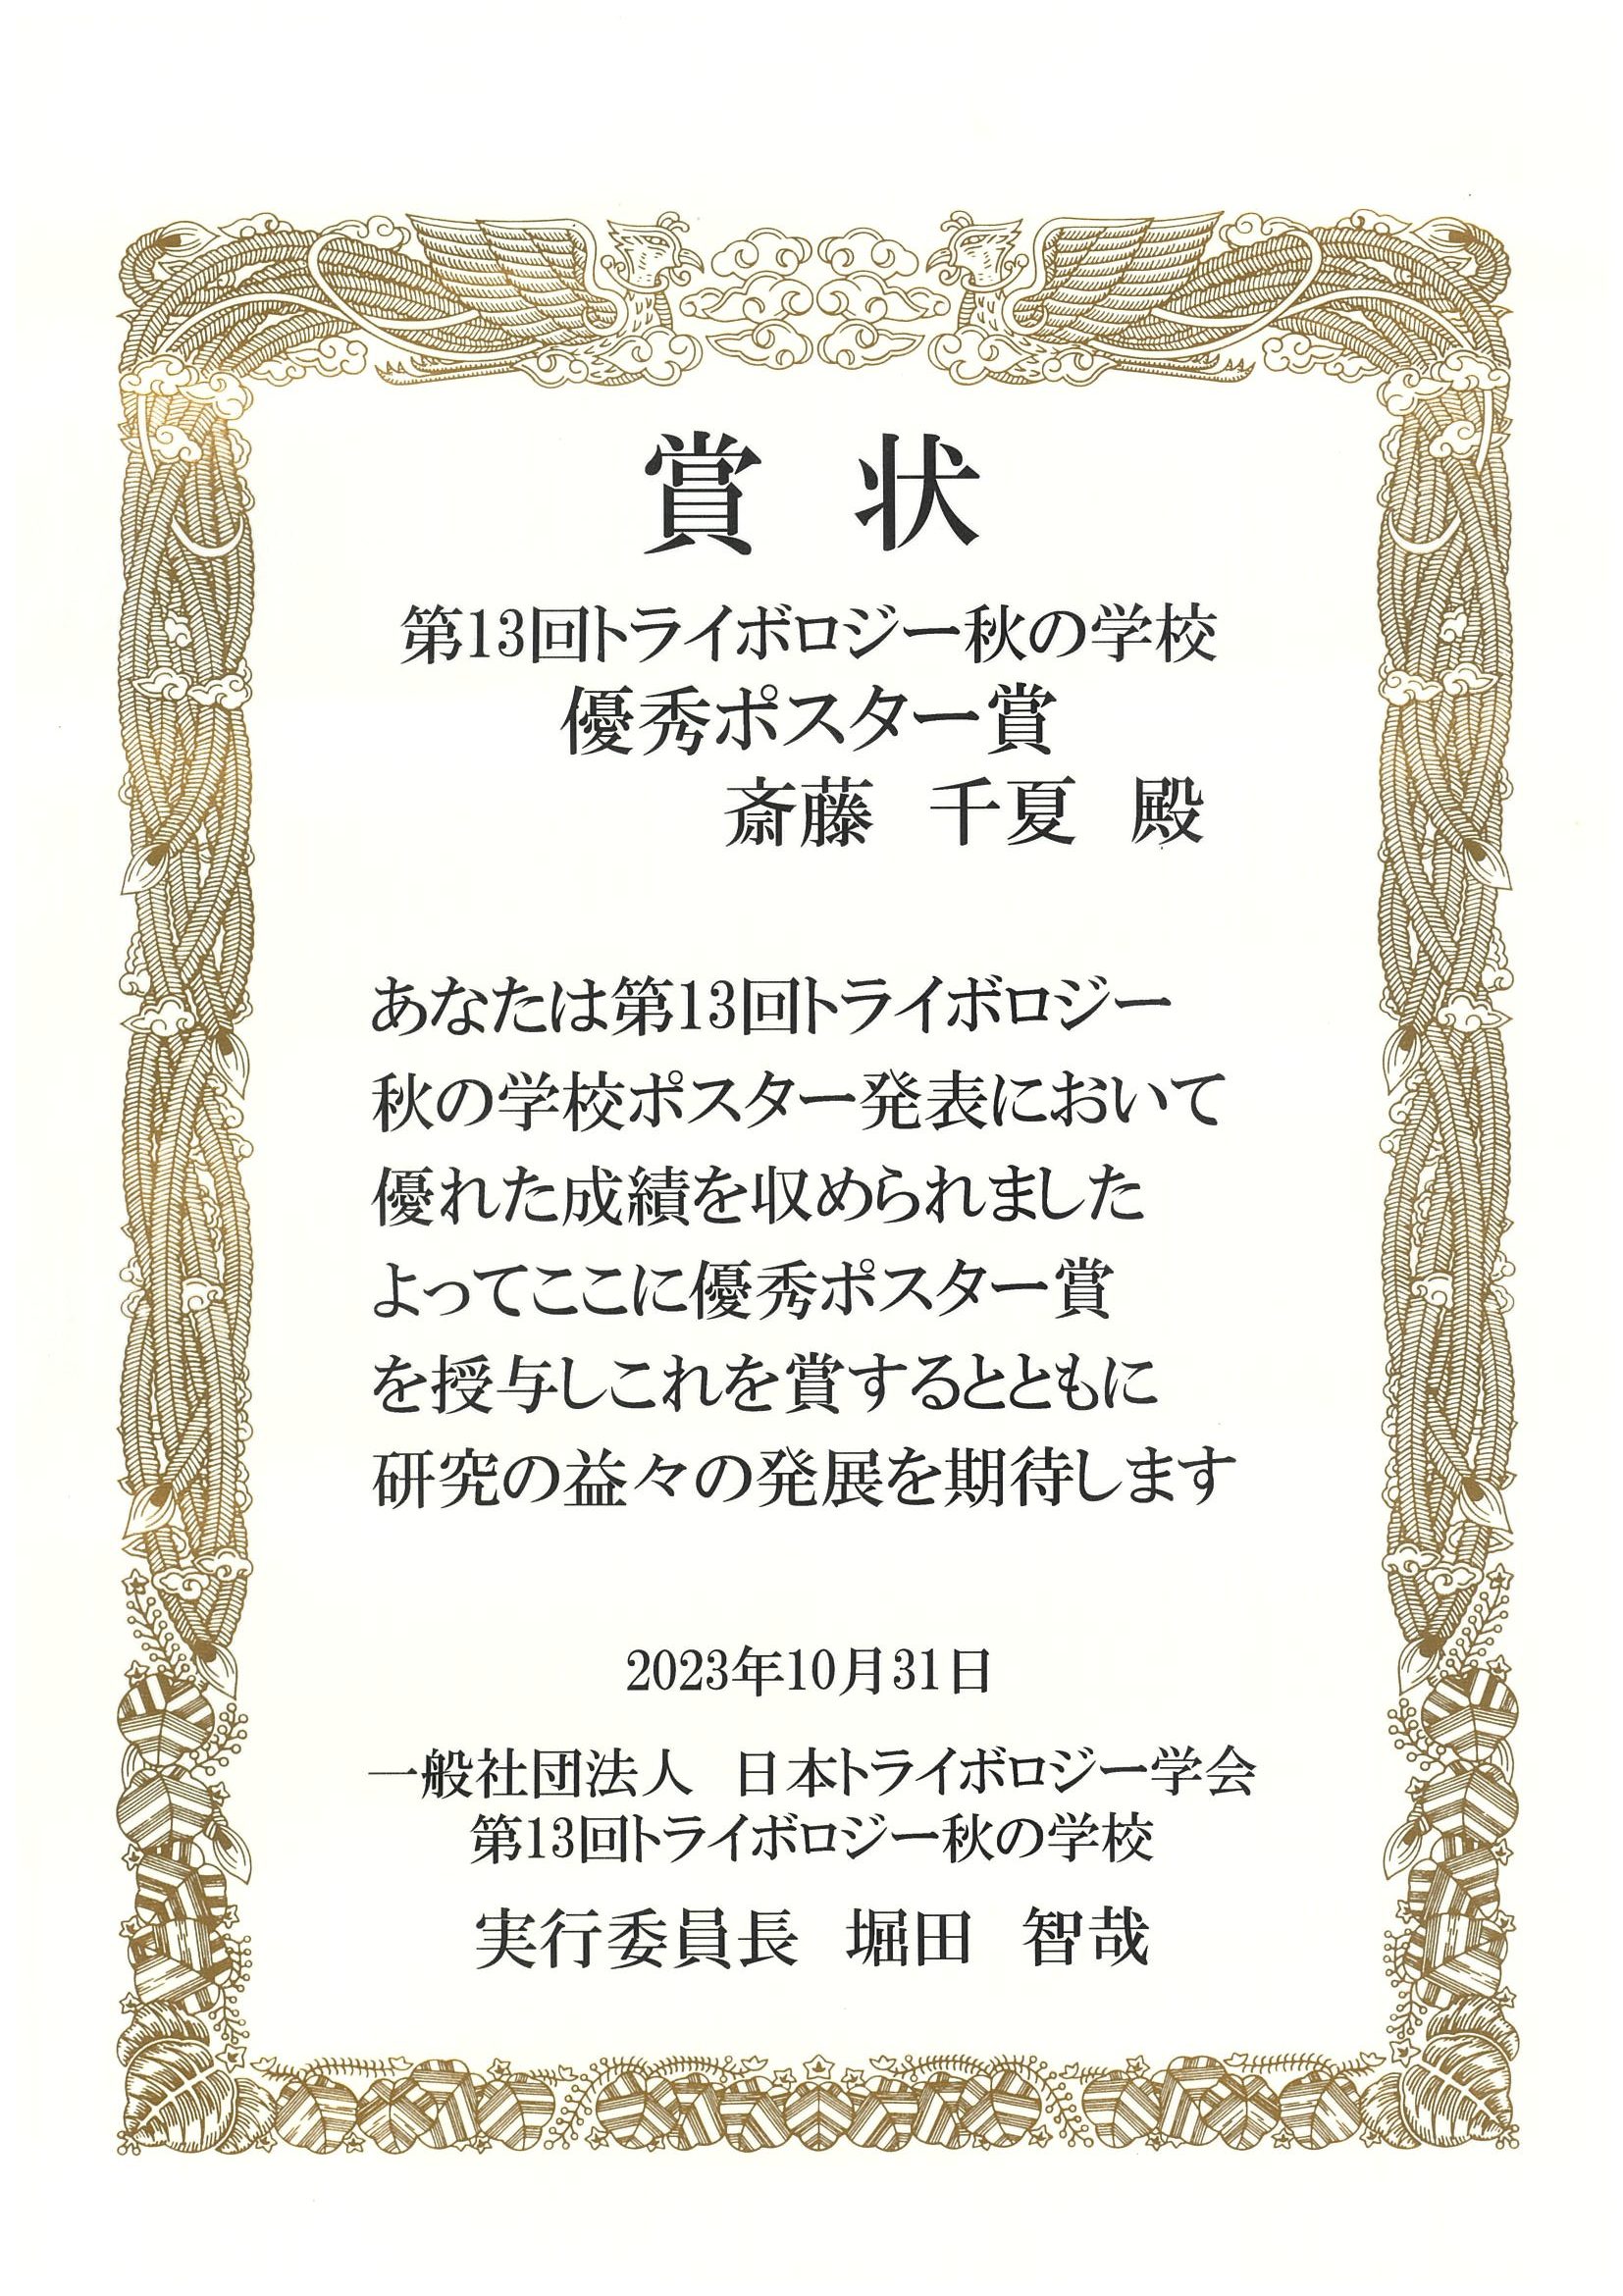 賞状
第13回トライボロジー秋の学校
優秀ポスター賞
斎藤 千夏 殿
あなたは第13回トライボロジー
秋の学校ポスター発表において
優れた成績を収められました
よってここに優秀ポスター賞
を授与しこれを賞するとともに
研究の益々の発展を期待します
2023年10月31日
一般社団法人 日本トライボロジー学会
第13回トライボロジー秋の学校
実行委員長 堀田 智哉